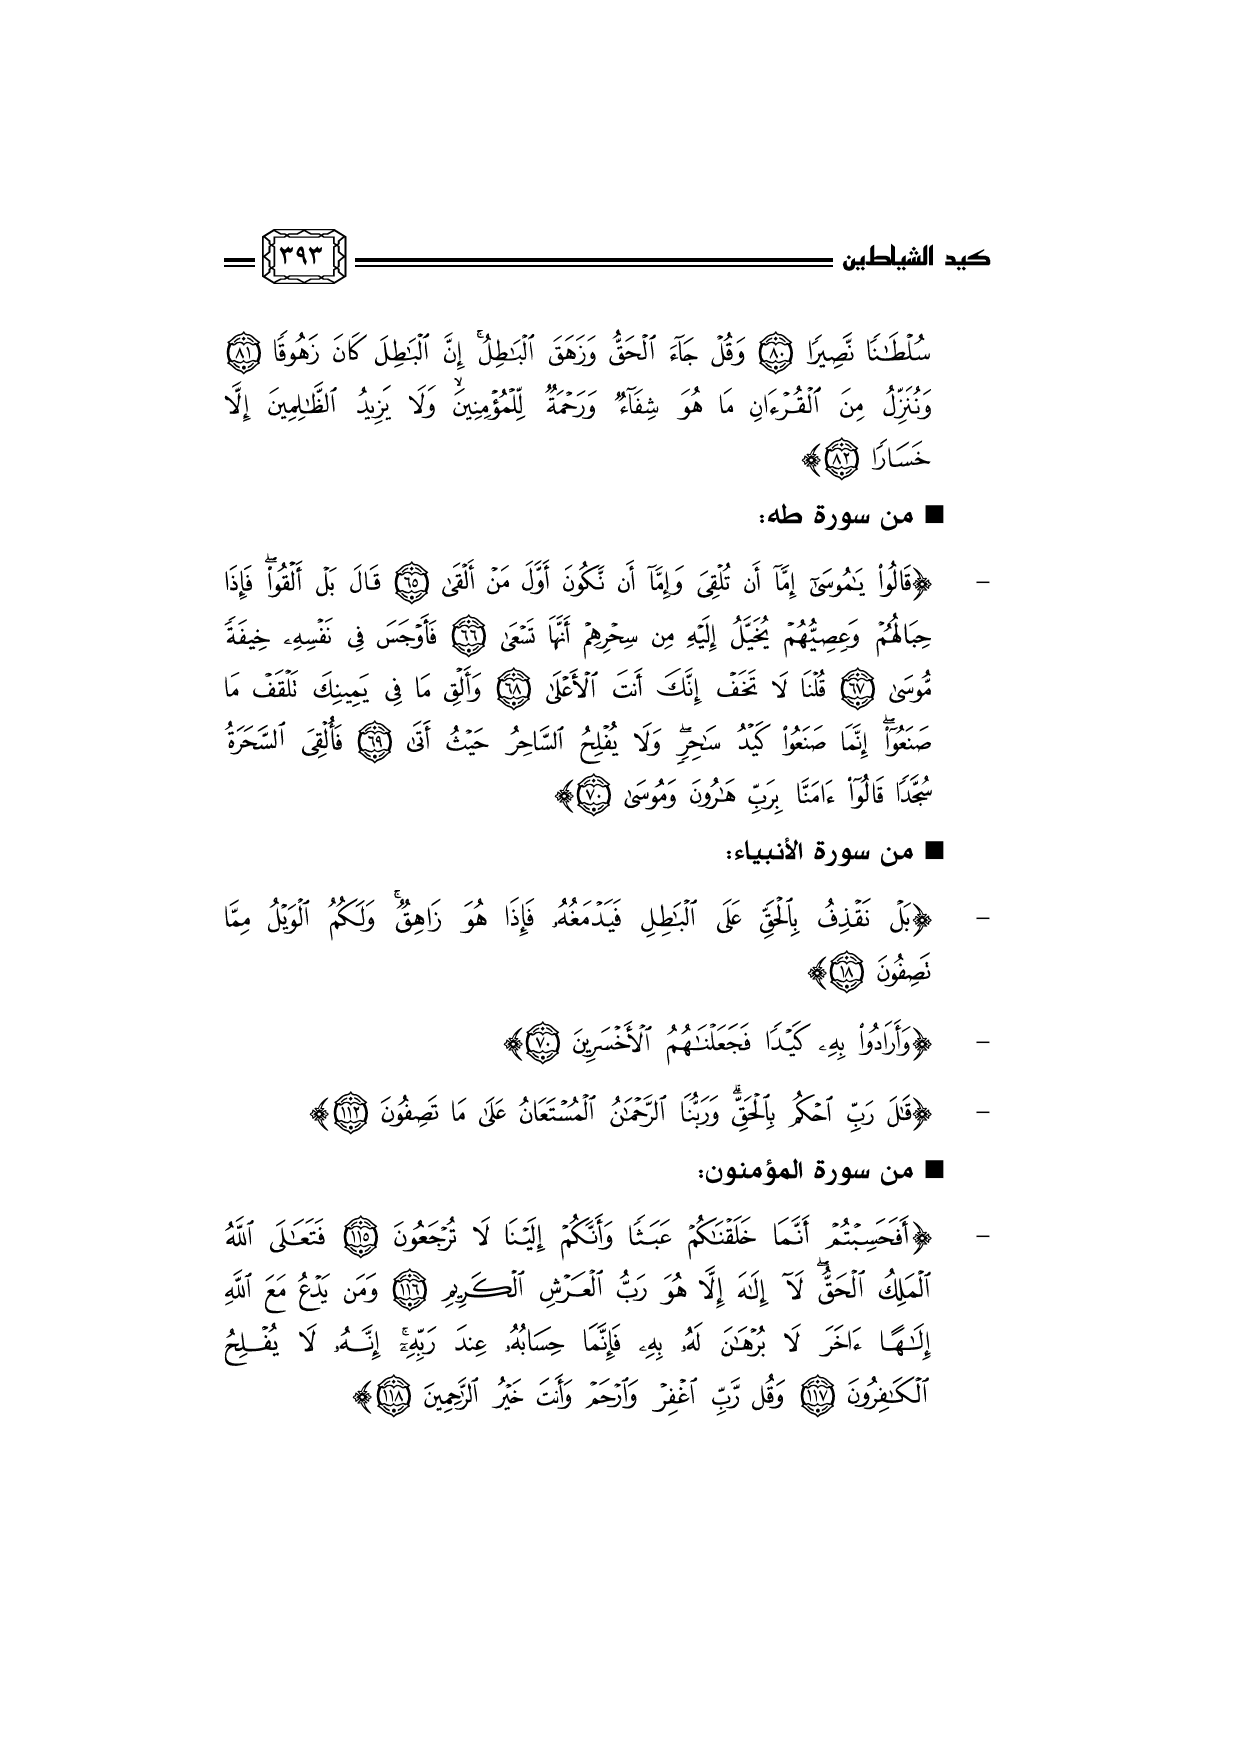 كيد الشياطين ٣٩٣
سُلْطَٰنًا نَّصِيرًا ٨٠ وَقُلْ جَآءَ ٱلْحَقُّ وَزَهَقَ ٱلْبَٰطِلُ ۚ إِنَّ ٱلْبَٰطِلَ كَانَ زَهُوقًا ٨١
وَنُنَزِّلُ مِنَ ٱلْقُرْءَانِ مَا هُوَ شِفَآءٌ وَرَحْمَةٌ لِّلْمُؤْمِنِينَ ۙ وَلَا يَزِيدُ ٱلظَّٰلِمِينَ إِلَّا
خَسَارًا ٨٢ ﴾
■ من سورة طه:
– ﴿ قَالُوا۟ يَٰمُوسَىٰٓ إِمَّآ أَن تُلْقِىَ وَإِمَّآ أَن نَّكُونَ أَوَّلَ مَنْ أَلْقَىٰ ٦٥ قَالَ بَلْ أَلْقُوا۟ ۖ فَإِذَا
حِبَالُهُمْ وَعِصِيُّهُمْ يُخَيَّلُ إِلَيْهِ مِن سِحْرِهِمْ أَنَّهَا تَسْعَىٰ ٦٦ فَأَوْجَسَ فِى نَفْسِهِۦ خِيفَةً
مُّوسَىٰ ٦٧ قُلْنَا لَا تَخَفْ إِنَّكَ أَنتَ ٱلْأَعْلَىٰ ٦٨ وَأَلْقِ مَا فِى يَمِينِكَ تَلْقَفْ مَا
صَنَعُوٓا۟ ۖ إِنَّمَا صَنَعُوا۟ كَيْدُ سَٰحِرٍ ۖ وَلَا يُفْلِحُ ٱلسَّاحِرُ حَيْثُ أَتَىٰ ٦٩ فَأُلْقِىَ ٱلسَّحَرَةُ
سُجَّدًا قَالُوٓا۟ ءَامَنَّا بِرَبِّ هَٰرُونَ وَمُوسَىٰ ٧٠ ﴾
■ من سورة الأنبياء:
– ﴿ بَلْ نَقْذِفُ بِٱلْحَقِّ عَلَى ٱلْبَٰطِلِ فَيَدْمَغُهُۥ فَإِذَا هُوَ زَاهِقٌ ۚ وَلَكُمُ ٱلْوَيْلُ مِمَّا
تَصِفُونَ ١٨ ﴾
– ﴿ وَأَرَادُوا۟ بِهِۦ كَيْدًا فَجَعَلْنَٰهُمُ ٱلْأَخْسَرِينَ ٧٠ ﴾
– ﴿ قَٰلَ رَبِّ ٱحْكُم بِٱلْحَقِّ ۗ وَرَبُّنَا ٱلرَّحْمَٰنُ ٱلْمُسْتَعَانُ عَلَىٰ مَا تَصِفُونَ ١١٢ ﴾
■ من سورة المؤمنون:
– ﴿ أَفَحَسِبْتُمْ أَنَّمَا خَلَقْنَٰكُمْ عَبَثًا وَأَنَّكُمْ إِلَيْنَا لَا تُرْجَعُونَ ١١٥ فَتَعَٰلَى ٱللَّهُ
ٱلْمَلِكُ ٱلْحَقُّ ۖ لَآ إِلَٰهَ إِلَّا هُوَ رَبُّ ٱلْعَرْشِ ٱلْكَرِيمِ ١١٦ وَمَن يَدْعُ مَعَ ٱللَّهِ
إِلَٰهًا ءَاخَرَ لَا بُرْهَٰنَ لَهُۥ بِهِۦ فَإِنَّمَا حِسَابُهُۥ عِندَ رَبِّهِۦٓ ۚ إِنَّهُۥ لَا يُفْلِحُ
ٱلْكَٰفِرُونَ ١١٧ وَقُل رَّبِّ ٱغْفِرْ وَٱرْحَمْ وَأَنتَ خَيْرُ ٱلرَّٰحِمِينَ ١١٨ ﴾